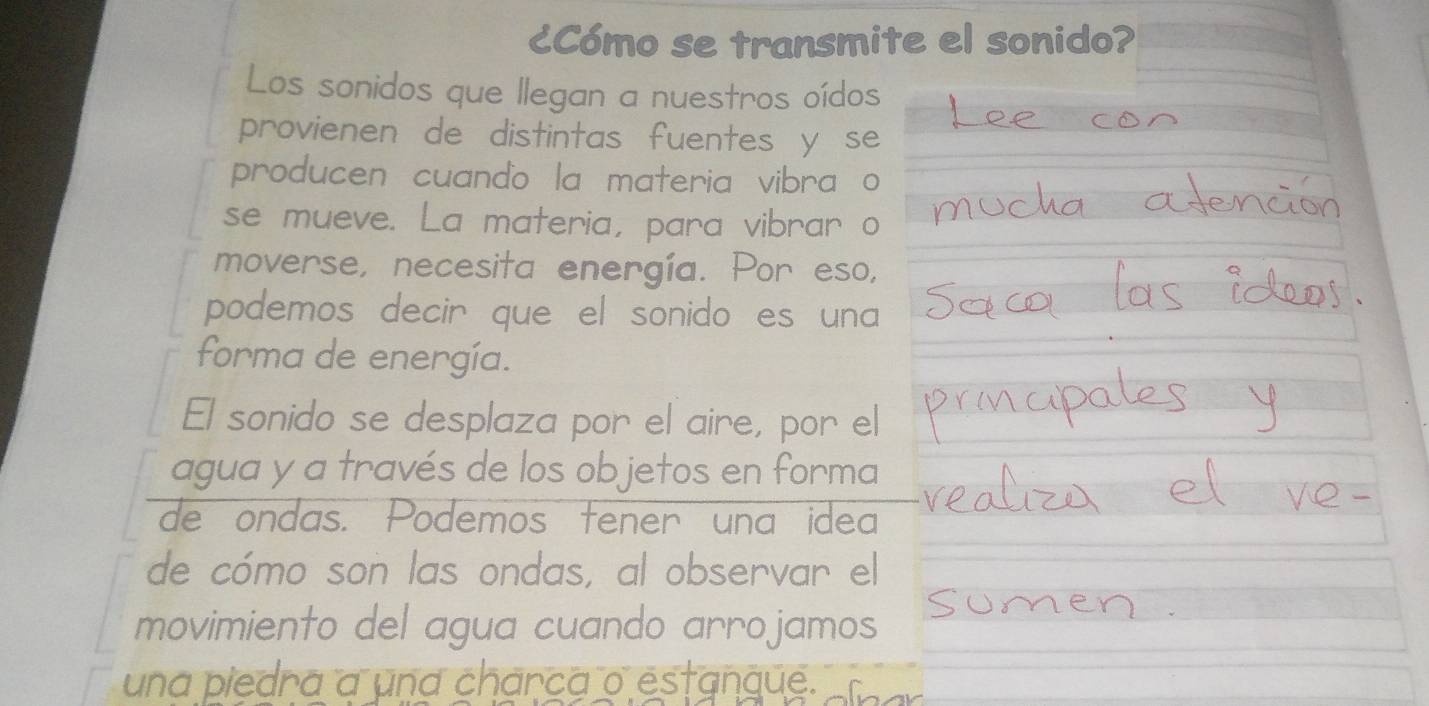 ¿Cómo se transmite el sonido?
Los sonidos que llegan a nuestros oídos
provienen de distintas fuentes y se
producen cuando la materia vibra o
se mueve. La materia, para vibrar o
moverse, necesita energía. Por eso,
podemos decir que el sonido es una
forma de energía.
El sonido se desplaza por el aire, por el
agua y a través de los objetos en forma
de ondas. Podemos tener una idea
de cómo son las ondas, al observar el
movimiento del agua cuando arrojamos
una piedra a una charca o estanque.
Lee con
mucha atención
Saca las ideas.
principales y
realiza el re-
sumen.